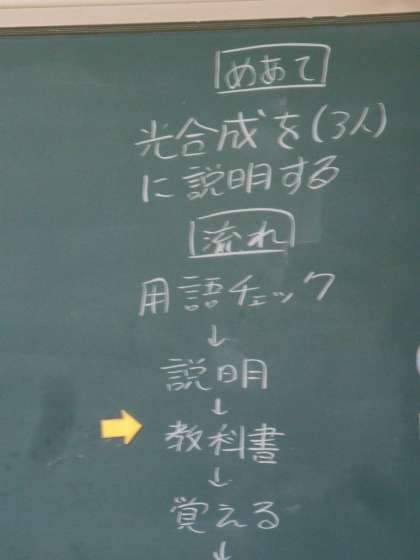 めあて
光合成を(3人)
に説明する
流れ
用語チェック
↓
説明
↓
教科書
↓
覚える
↓